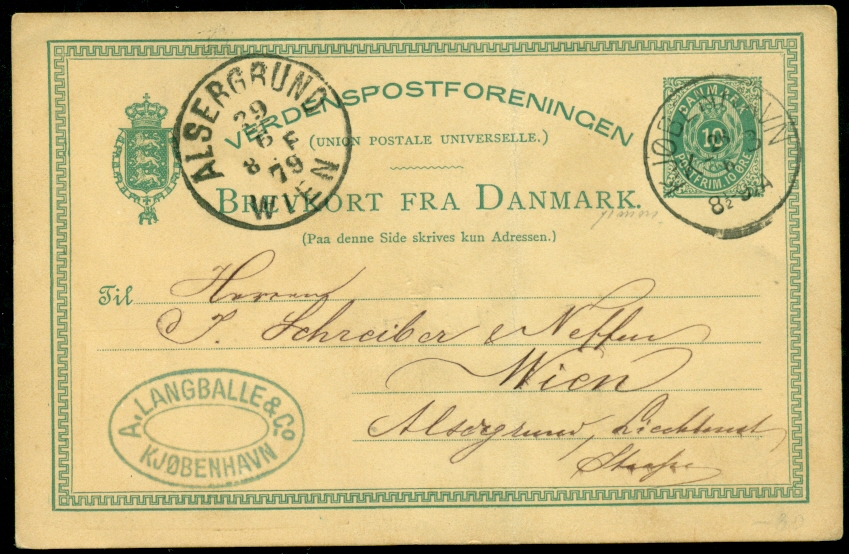 VERDENSPOSTFORENINGEN
(UNION POSTALE UNIVERSELLE.)
BREVKORT FRA DANMARK.
(Paa denne Side skrives kun Adressen.)
ALSERGRUND
29
6
8 F
79
WIEN
DANMARK
10
POSTFRIM. 10 ØRE
KJØBENHAVN
Til Herren
J. Schreiber & Neffen
Wien
Alsergrund, Liechtenst
Strasse
A. LANGBALLE & Co
KJØBENHAVN